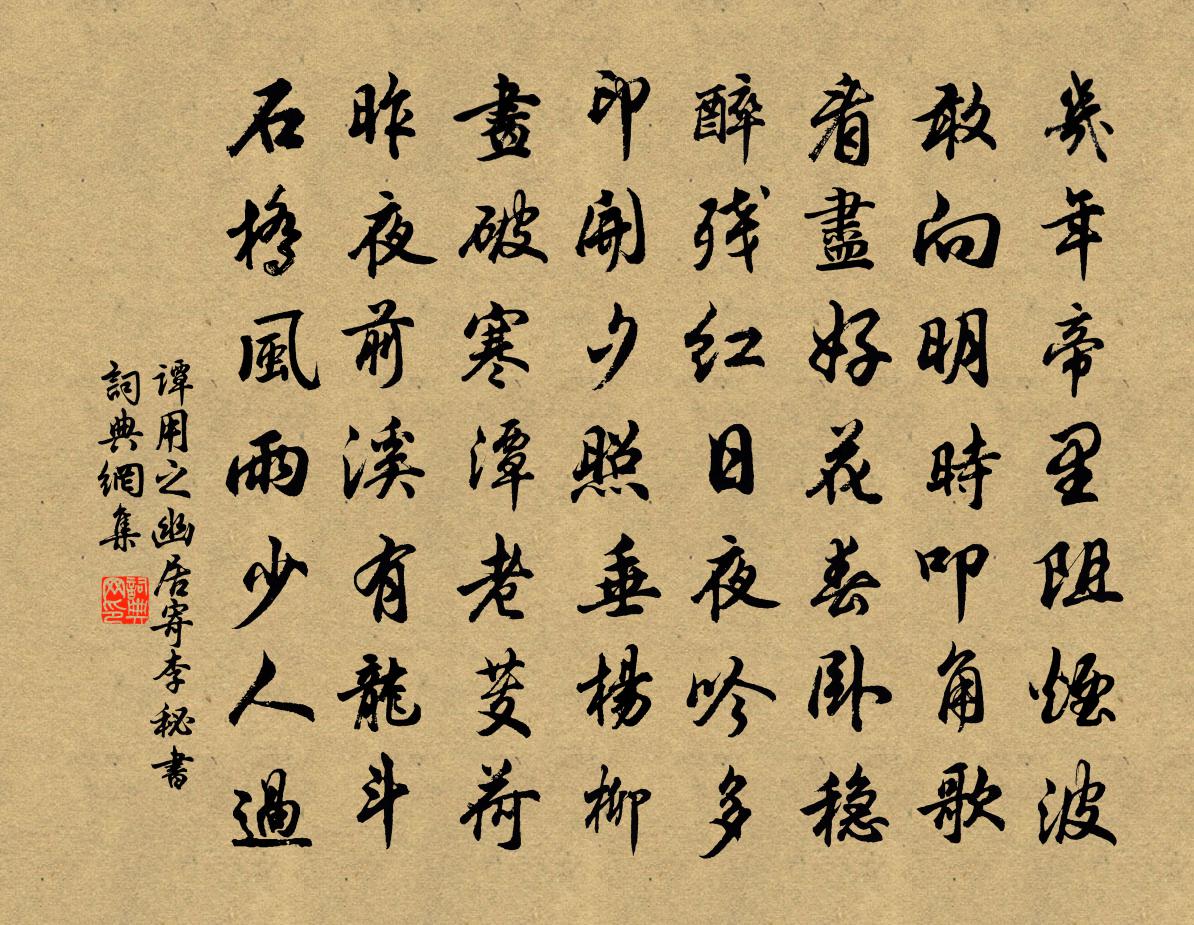 幾年帝里阻煙波
敢向明時叩角歌
看盡好花春卧稳
醉残红日夜吟多
印開夕照垂楊柳
畫破寒潭老芰荷
昨夜前溪有龍斗
石橋風雨少人過
谭用之幽居寄李秘書
詞典網集
詞典网印